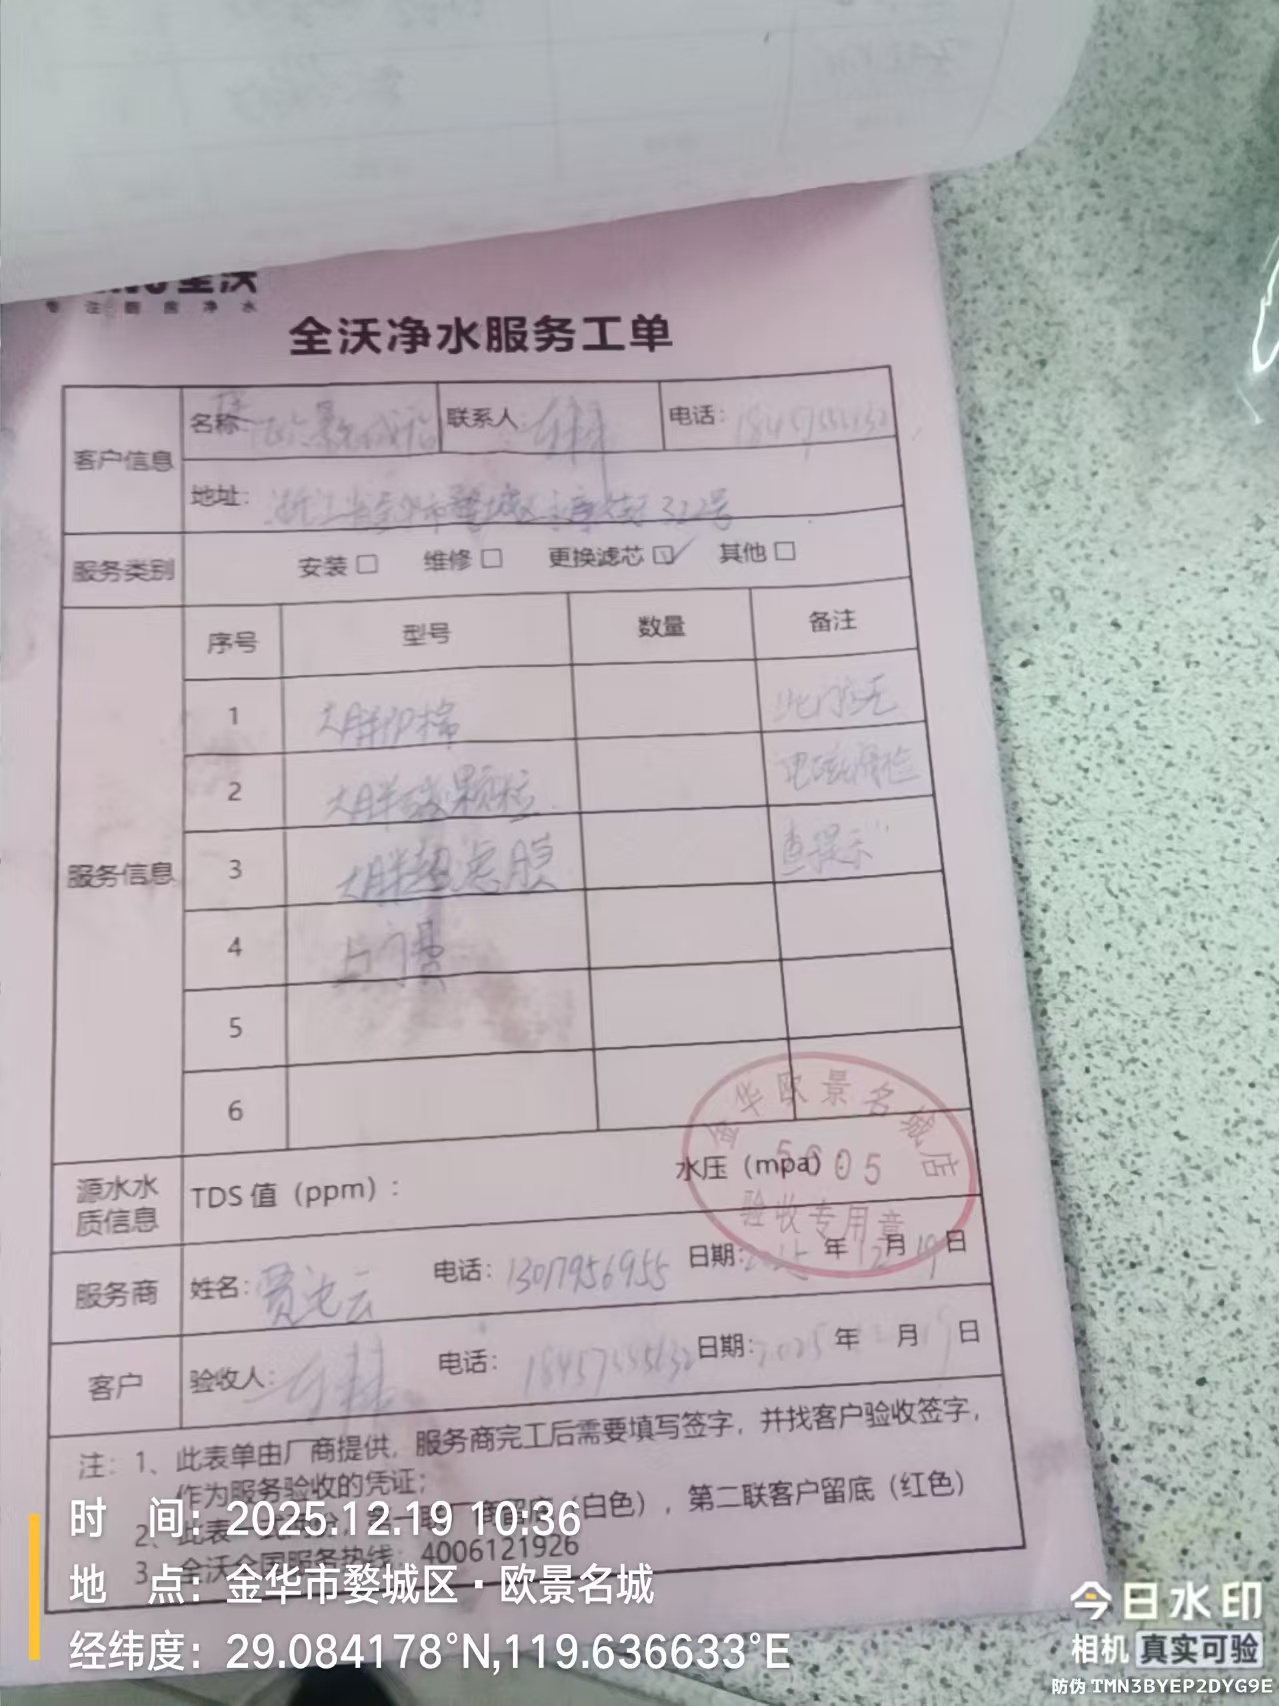 全沃
专注厨房净水
全沃净水服务工单
客户信息 名称 欧景名城店 联系人: 电话: 18457555632
地址: 浙江省金华市婺城区 街322号
服务类别 安装□ 维修□ 更换滤芯☑ 其他□
服务信息 序号 型号 数量 备注
1 大胖PP棉 此门店无
2 大胖碳颗粒 电磁 检
3 大胖超滤膜 查提示
4 上门费
5
6
金华欧景名城店
5605
验收专用章
源水水质信息 TDS 值(ppm): 水压(mpa):
服务商 姓名: 贾 云 电话: 13017956955 日期: 2025年12月19日
客户 验收人: 电话: 18457555632 日期: 2025年12月19日
注: 1、此表单由厂商提供,服务商完工后需要填写签字,并找客户验收签字,
作为服务验收的凭证;
2、此表一 第一联 留底(白色),第二联客户留底(红色)
3、全沃全国服务热线: 4006121926
时 间: 2025.12.19 10:36
地 点: 金华市婺城区·欧景名城
经纬度: 29.084178°N,119.636633°E
今日水印
相机 真实可验
防伪 TMN3BYEP2DYG9E